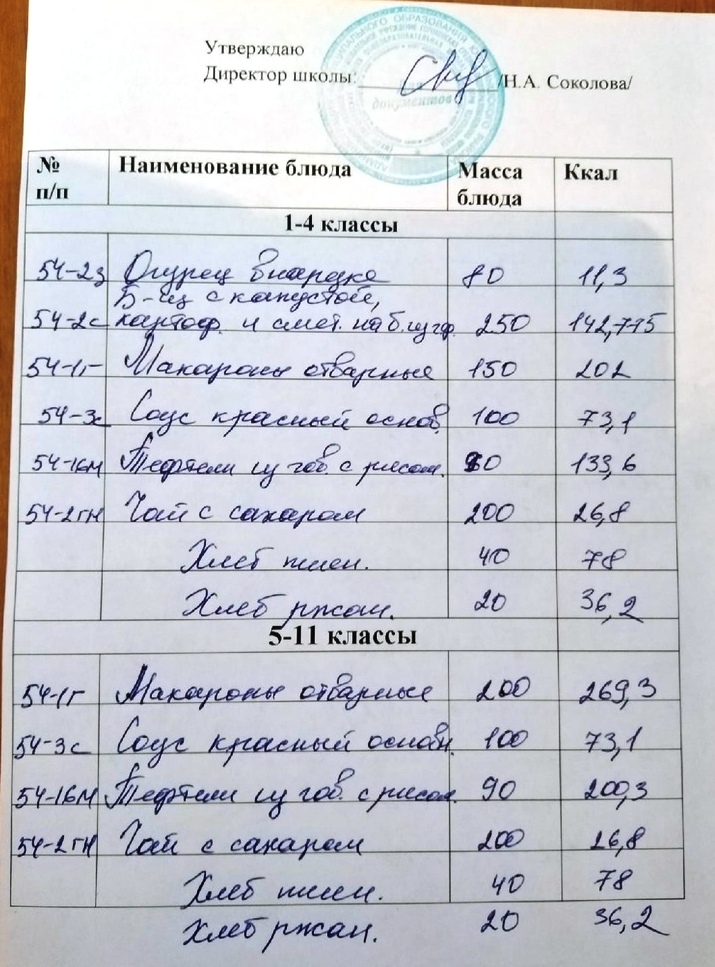 Утверждаю
Директор школы: /Н.А. Соколова/
документов
№ п/п Наименование блюда Масса блюда Ккал
1-4 классы
54-2з Огурец в нарезке 80 11,3
Б-щ с капустой,
54-2с картоф. и смет. на б. из гф. 250 142,775
54-1г Макароны отварные 150 202
54-3с Соус красный основ. 100 73,1
54-16м Тефтели из гов. с рисом. 60 133,6
54-2гн Чай с сахаром 200 26,8
Хлеб пшен. 40 78
Хлеб ржан. 20 36,2
5-11 классы
54-1г Макароны отварные 200 269,3
54-3с Соус красный основн. 100 73,1
54-16м Тефтели из гов. с рисом. 90 200,3
54-2гн Чай с сахаром 200 26,8
Хлеб пшен. 40 78
Хлеб ржан. 20 36,2